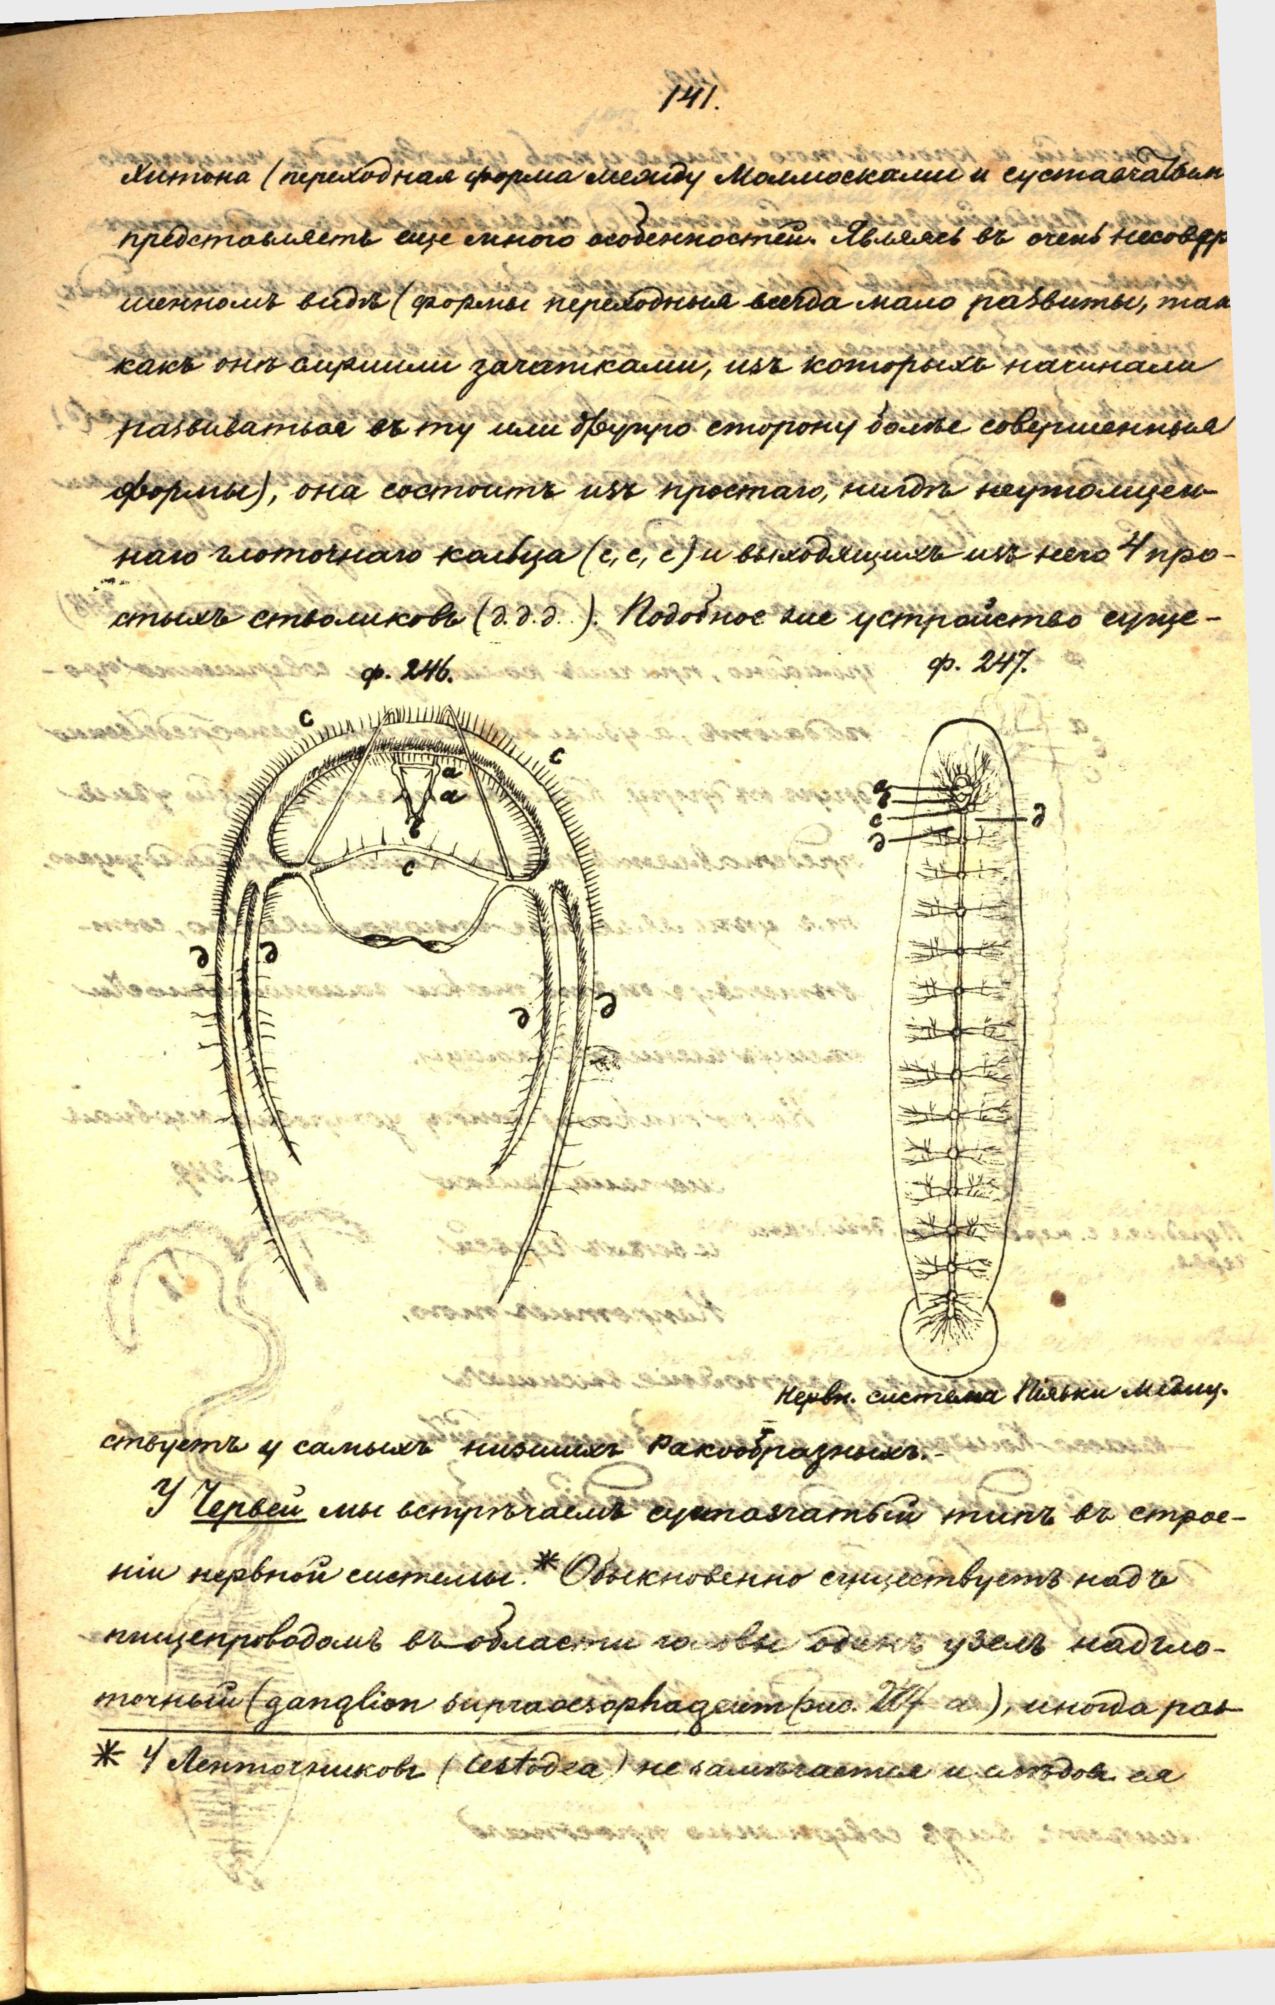 141.
Хитона (переходная форма между Моллюсками и суставчатым
представляетъ еще много особенностей. Являясь въ очень несовер
шенномъ видѣ (формы переходныя всегда мало развиты, так
какъ онѣ служили зачатками, изъ которыхъ начинали
развиваться въ ту или другую сторону болѣе совершенныя
формы), она состоитъ изъ простаго, нигдѣ неутолщен-
наго глоточнаго кольца (с, с, с) и выходящихъ изъ него 4 про-
стыхъ стволиковъ (д.д.д..). Подобное же устройство суще-
ф. 246.
ф. 247.
с
с
а
а
в
с
е
е
е
е
а
в
с
д
д
Нервн. система Піявки Медиц.
ствуетъ у самыхъ низшихъ Ракообразныхъ.-
У Червей мы встрѣчаемъ суставчатый типъ въ строе-
ніи нервной системы.* Обыкновенно существуетъ надъ
пищепроводомъ въ области головы одинъ узелъ надгло-
точный (ganglion supraoesophageum (рис. 247 а), иногда раз
* У Ленточниковъ (Cestodea) не замѣчается и слѣдов ея